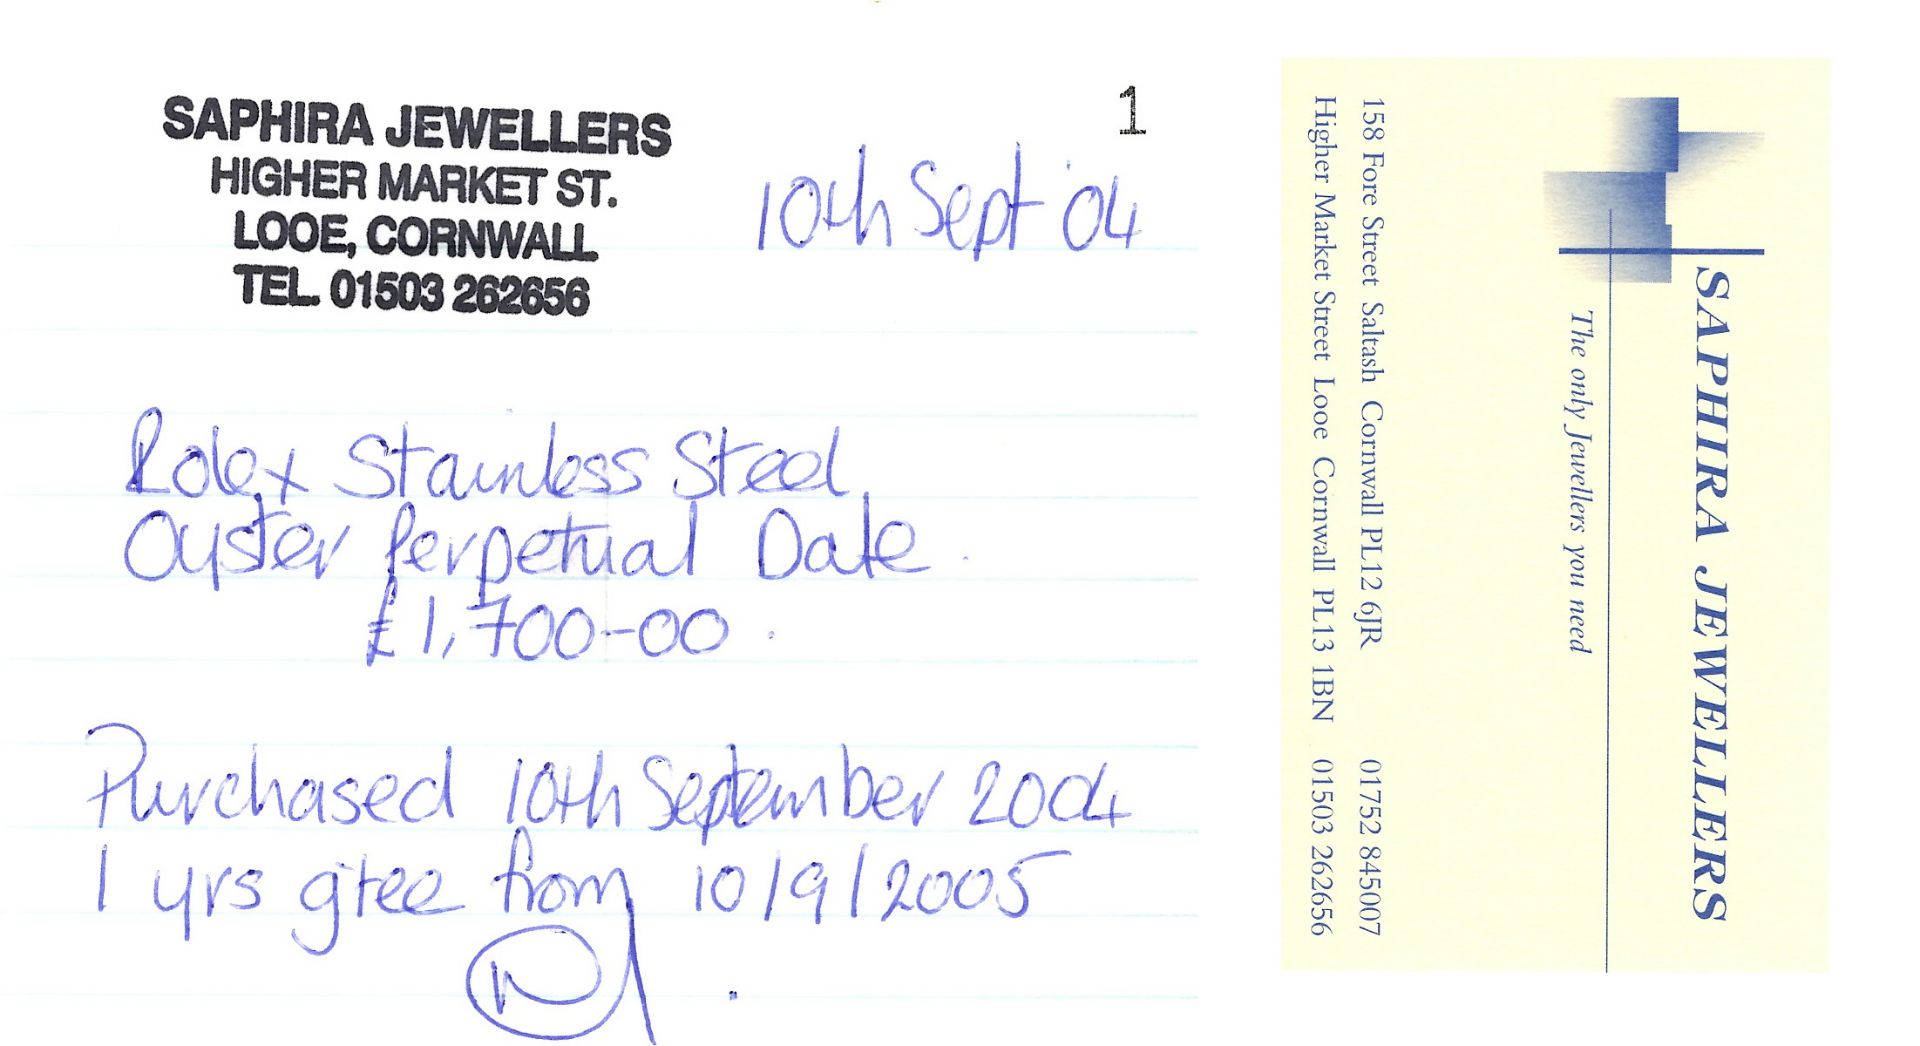 SAPHIRA JEWELLERS
HIGHER MARKET ST.
LOOE, CORNWALL
TEL. 01503 262656
1
10th Sept '04
Rolex Stainless Steel
Oyster Perpetual Date.
£1,700-00.
Purchased 10th September 2004
1 yrs gtee from 10/9/2005
SAPHIRA JEWELLERS
The only Jewellers you need
158 Fore Street Saltash Cornwall PL12 6JR 01752 845007
Higher Market Street Looe Cornwall PL13 1BN 01503 262656